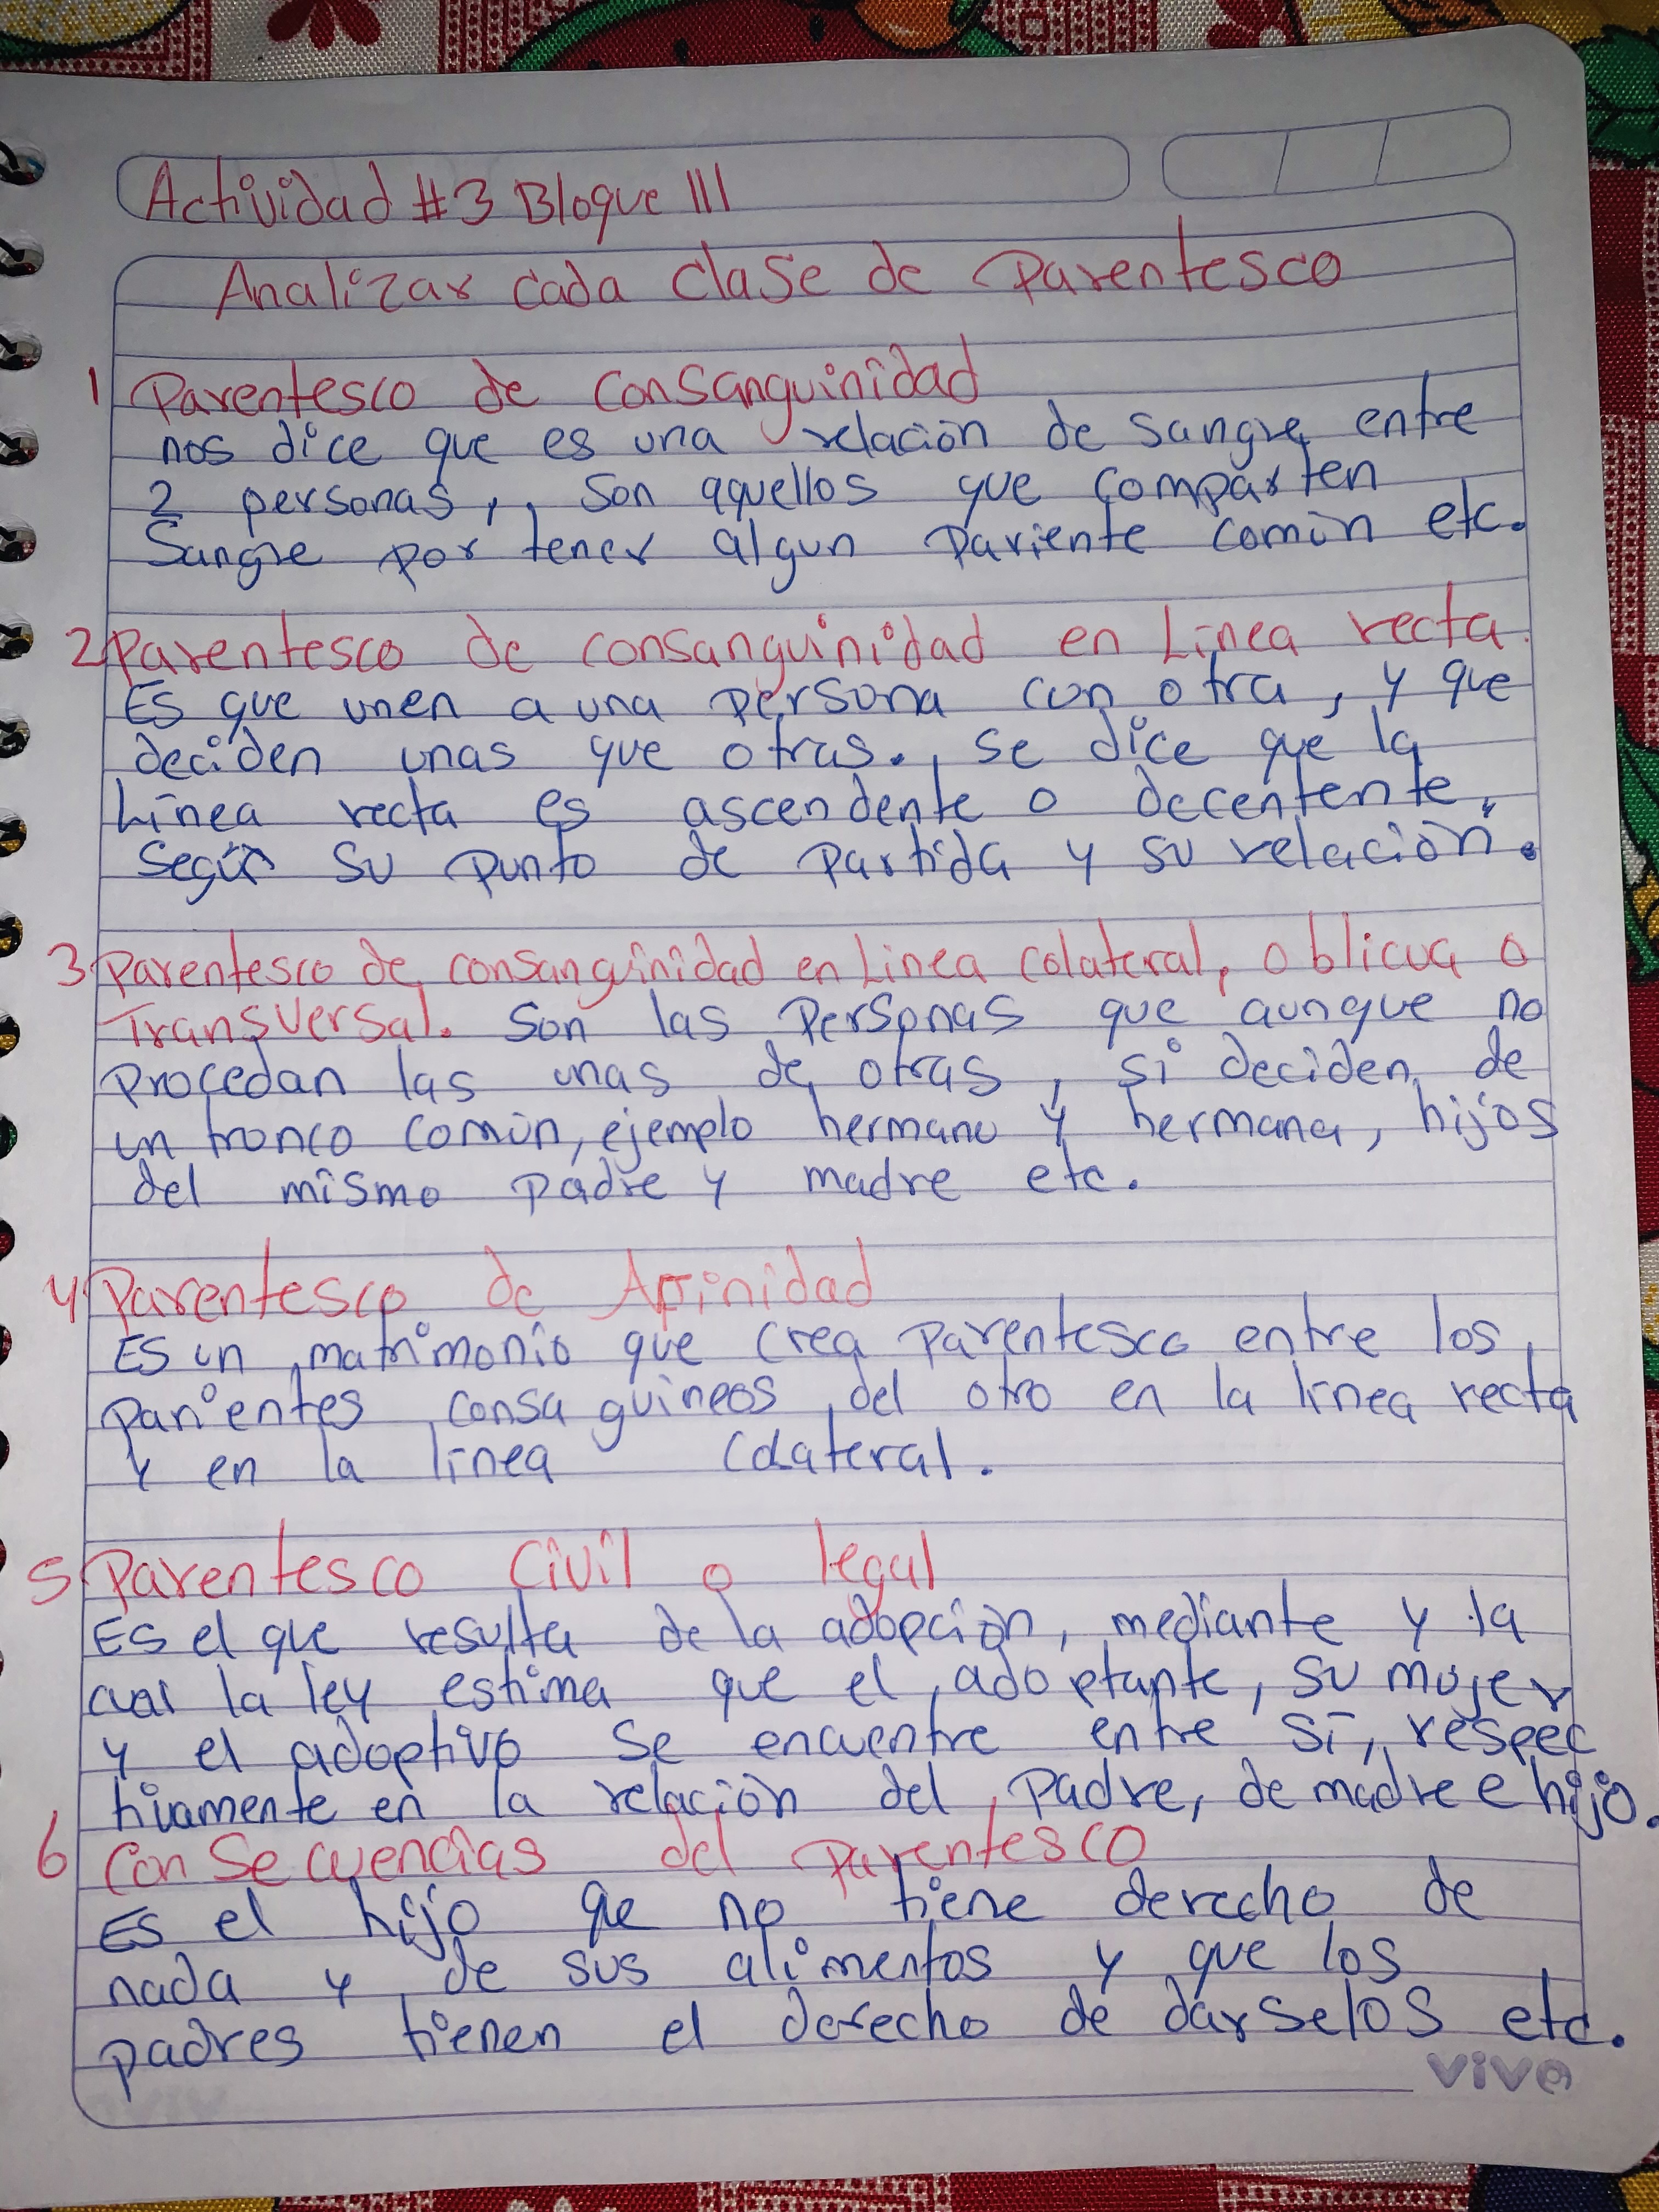 Actividad #3 Bloque III
Analizar cada clase de Parentesco
1 Parentesco de consanguinidad
nos dice que es una relación de sangre entre
2 personas, son aquellos que comparten
Sangre por tener algun Pariente común etc.
2 Parentesco de consanguinidad en Linea recta.
Es que unen a una persona con otra, y que
deciden unas que otras. se dice que la
Línea recta es ascendente o decentente,
según su punto de partida y su relación.
3 Parentesco de consanguinidad en Linea colateral, oblicua o
Transversal. Son las personas que aunque no
procedan las unas de otras, si deciden de
un tronco común, ejemplo hermano y hermana, hijos
del mismo padre y madre etc.
4 Parentesco de Afinidad
Es un matrimonio que crea parentesco entre los
parientes consaguineos del otro en la linea recta
y en la linea colateral.
5 Parentesco Civil o legal
Es el que resulta de la adopción, mediante y la
cual la ley estima que el adoptante, su mujer
y el adoptivo se encuentre entre sí, respec
tivamente en la relación del Padre, de madre e hijo.
6 Consecuencias del parentesco
Es el hijo qe no tiene derecho de
nada y de sus alimentos y que los
padres tienen el derecho de dárselos etc.
viva